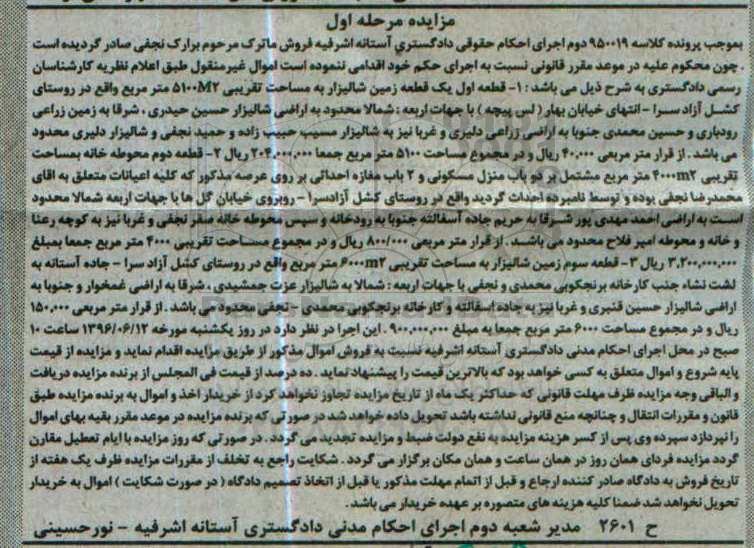 مزایده مرحله اول
بموجب پرونده کلاسه ۹۵۰۰۱۹ دوم اجرای احکام حقوقی دادگستری آستانه اشرفیه فروش ماترک مرحوم برارک نجفی صادر گردیده است
. چون محکوم علیه در موعد مقرر قانونی نسبت به اجرای حکم خود اقدامی ننموده است اموال غیرمنقول طبق اعلام نظریه کارشناسان
رسمی دادگستری به شرح ذیل می باشد : ۱- قطعه اول یک قطعه زمین شالیزار به مساحت تقریبی ۵۱۰۰M۲ متر مربع واقع در روستای
کشل آزاد سرا - انتهای خیابان بهار ( لس پیچه ) با جهات اربعه : شمالا محدود به اراضی شالیزار حسین حیدری ، شرقا به زمین زراعی
رودباری و حسین محمدی جنوبا به اراضی زراعی دلیری و غربا نیز به شالیزار مسیب حبیب زاده و حمید نجفی و شالیزار دلیری محدود
می باشد . از قرار متر مربعی ۴۰,۰۰۰ ریال و در مجموع مساحت ۵۱۰۰ متر مربع جمعا ۲۰۴,۰۰۰,۰۰۰ ریال ۲- قطعه دوم محوطه خانه بمساحت
تقریبی ۴۰۰۰m۲ متر مربع مشتمل بر دو باب منزل مسکونی و ۲ باب مغازه احداثی بر روی عرصه مذکور که کلیه اعیانات متعلق به اقای
محمدرضا نجفی بوده و توسط نامبرده احداث گردید واقع در روستای کشل آزادسرا - روبروی خیابان گل ها با جهات اربعه شمالا محدود
است به اراضی احمد مهدی پور شرقا به حریم جاده آسفالته جنوبا به رودخانه و سپس محوطه خانه صفر نجفی و غربا نیز به کوچه رعنا
و خانه و محوطه امیر فلاح محدود می باشد . از قرار متر مربعی ۸۰۰/۰۰۰ ریال و در مجموع مساحت تقریبی ۴۰۰۰ متر مربع جمعا بمبلغ
۳,۲۰۰,۰۰۰,۰۰۰ ریال ۳- قطعه سوم زمین شالیزار به مساحت تقریبی ۶۰۰۰m۲ متر مربع واقع در روستای کشل آزاد سرا - جاده آستانه به
لشت نشاء جنب کارخانه برنجکوبی محمدی و نجفی با جهات اربعه : شمالا به شالیزار عزت جمشیدی ، شرقا به اراضی غمخوار و جنوبا به
اراضی شالیزار حسین قنبری و غربا نیز به جاده اسفالته و کارخانه برنجکوبی محمدی - نجفی محدود می باشد . از قرار متر مربعی ۱۵۰,۰۰۰
ریال و در مجموع مساحت ۶۰۰۰ متر مربع جمعا به مبلغ ۹۰۰,۰۰۰,۰۰۰ . این اجرا در نظر دارد در روز یکشنبه مورخه ۱۳۹۶/۰۶/۱۲ ساعت ۱۰
صبح در محل اجرای احکام مدنی دادگستری آستانه اشرفیه نسبت به فروش اموال مذکور از طریق مزایده اقدام نماید و مزایده از قیمت
پایه شروع و اموال متعلق به کسی خواهد بود که بالاترین قیمت را پیشنهاد نماید . ده درصد از قیمت فی المجلس از برنده مزایده دریافت
و الباقی وجه مزایده ظرف مهلت قانونی که حداکثر یک ماه از تاریخ مزایده تجاوز نخواهد کرد از خریدار اخذ و اموال به برنده مزایده طبق
قانون و مقررات انتقال و چنانچه منع قانونی نداشته باشد تحویل داده خواهد شد در صورتی که برنده مزایده در موعد مقرر بقیه بهای اموال
را نپردازد سپرده وی پس از کسر هزینه مزایده به نفع دولت ضبط و مزایده تجدید می گردد . در صورتی که روز مزایده با ایام تعطیل مقارن
گردد مزایده فردای همان روز در همان ساعت و همان مکان برگزار می گردد . شکایت راجع به تخلف از مقررات مزایده ظرف یک هفته از
تاریخ فروش به دادگاه صادر کننده ارجاع و قبل از اتمام مهلت مذکور یا قبل از اتخاذ تصمیم دادگاه ( در صورت شکایت ) اموال به خریدار
تحویل نخواهد شد ضمنا کلیه هزینه های متصوره بر عهده خریدار می باشد .
ح ۲۶۰۱ مدیر شعبه دوم اجرای احکام مدنی دادگستری آستانه اشرفیه - نورحسینی